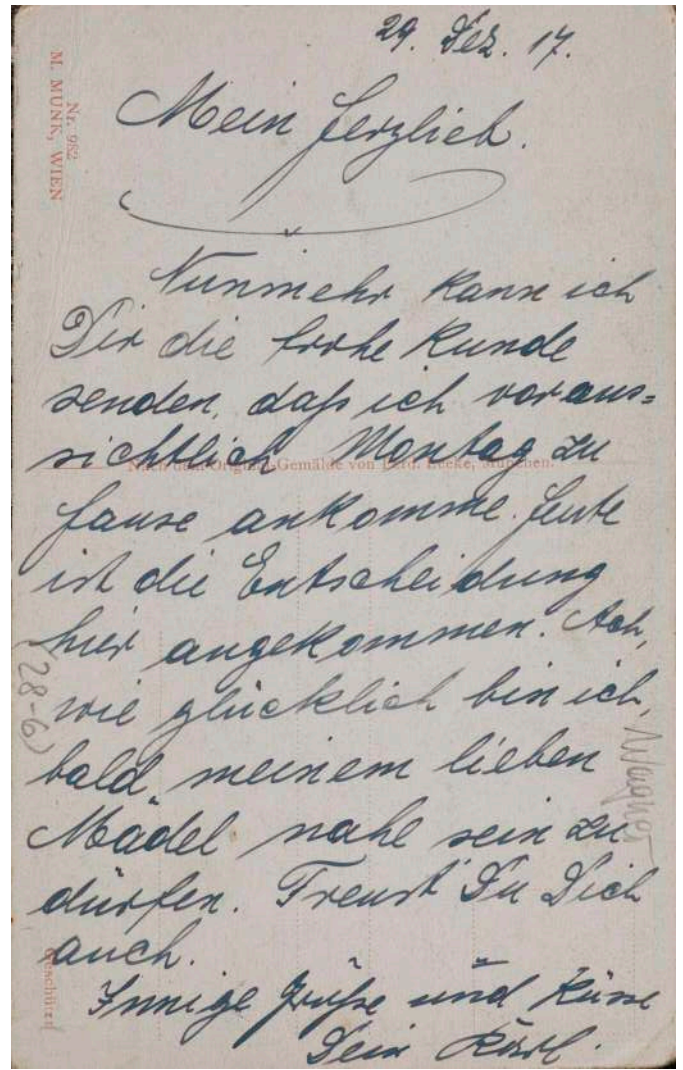 29. Dez. 17.
Mein Herzlieb.
Nunmehr kann ich
Dir die frohe Kunde
senden, daß ich voraus=
sichtlich Montag zu
Hause ankomme. Heute
ist die Entscheidung
hier angekommen. Ach,
wie glücklich bin ich,
bald meinem lieben
Mädel nahe sein zu
dürfen. Freust Du Dich
auch.
Innige Grüße und Küsse
Dein Karl.
Nr. 982
M. MUNK, WIEN
Nach dem Original-Gemälde von Ferd. Leeke, München.
(28-6)
Wagner
Geschützt